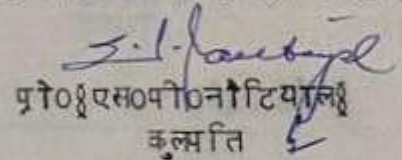 प्रो०§एस०पी०नौटियाल§
कुलपति